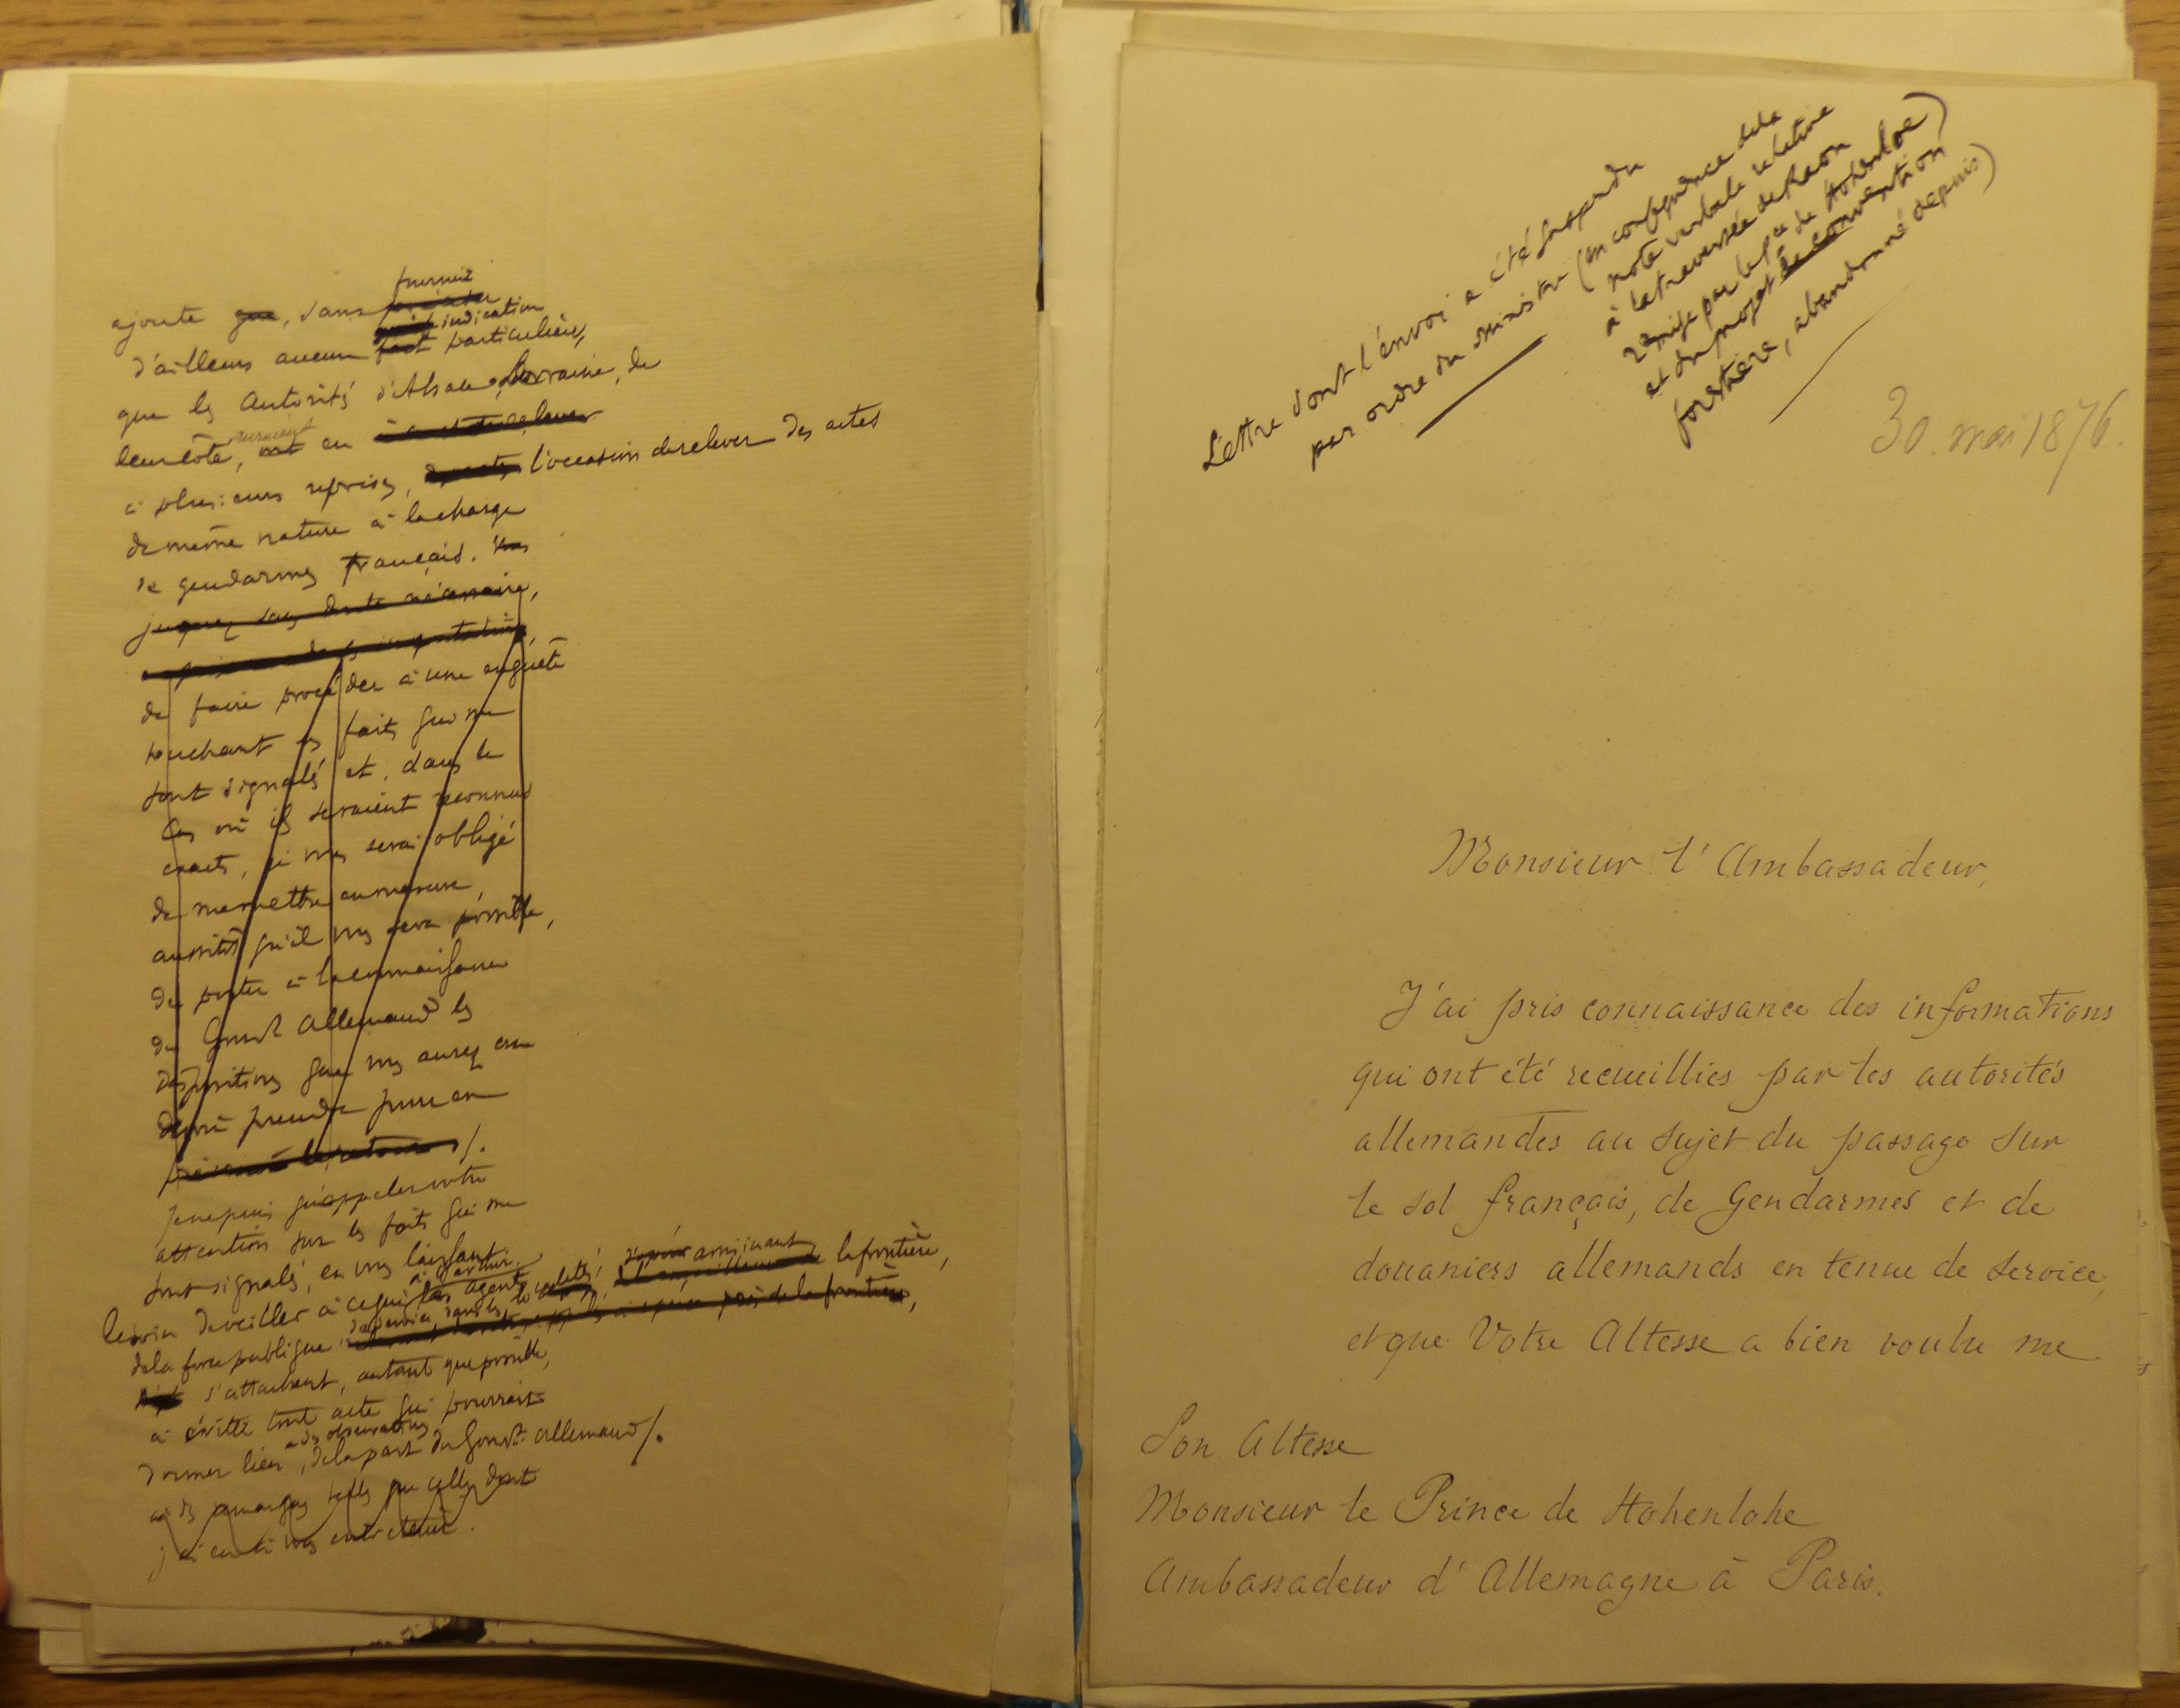 fournir
ajoute que, sans
indication
d'ailleurs aucun fait particulière,
que les Autorités d'Alsace-Lorraine, de
leur côté, auraient ont eu
à plusieurs reprises, l'occasion de relever des actes
de même nature à la charge
de gendarmes français. Vous
jugerez sans doute nécessaire,
de faire procéder à une enquête
touchant les faits qui me
sont signalés et, dans le
cas où ils seraient reconnus
exacts, je vous serai obligé
de me mettre en mesure,
aussitôt qu'il vous sera possible,
de porter à la connaissance
du Gouvt Allemand les
dispositions que vous aurez cru
devoir prendre pour en
je ne puis qu'appeler votre
attention sur les faits qui me
sont signalés, en vous laissant
le soin de veiller à ce que les agents
de la force publique de service, dans les localités avoisinant la frontière,
s'attachent, autant que possible,
à éviter tout acte qui pourrait
à des observations
donner lieu, de la part du Gouvt. allemand /.
à des remarques telles que celles dont
j'ai eu à vous entretenir.
Lettre dont l'envoi a été suspendu
par ordre du ministre (en conséquence de la
note verbale relative
à la traversée de Raon
remise par le pce de Hohenloe)
et du projet de convention
forestière, abandonné depuis)
30 mai 1876.
Monsieur l'Ambassadeur,
J'ai pris connaissance des informations
qui ont été recueillies par les autorités
allemandes au sujet du passage sur
le sol français, de Gendarmes et de
douaniers allemands en tenue de service,
et que Votre Altesse a bien voulu me
Son Altesse
Monsieur le Prince de Hohenlohe
Ambassadeur d'Allemagne à Paris.